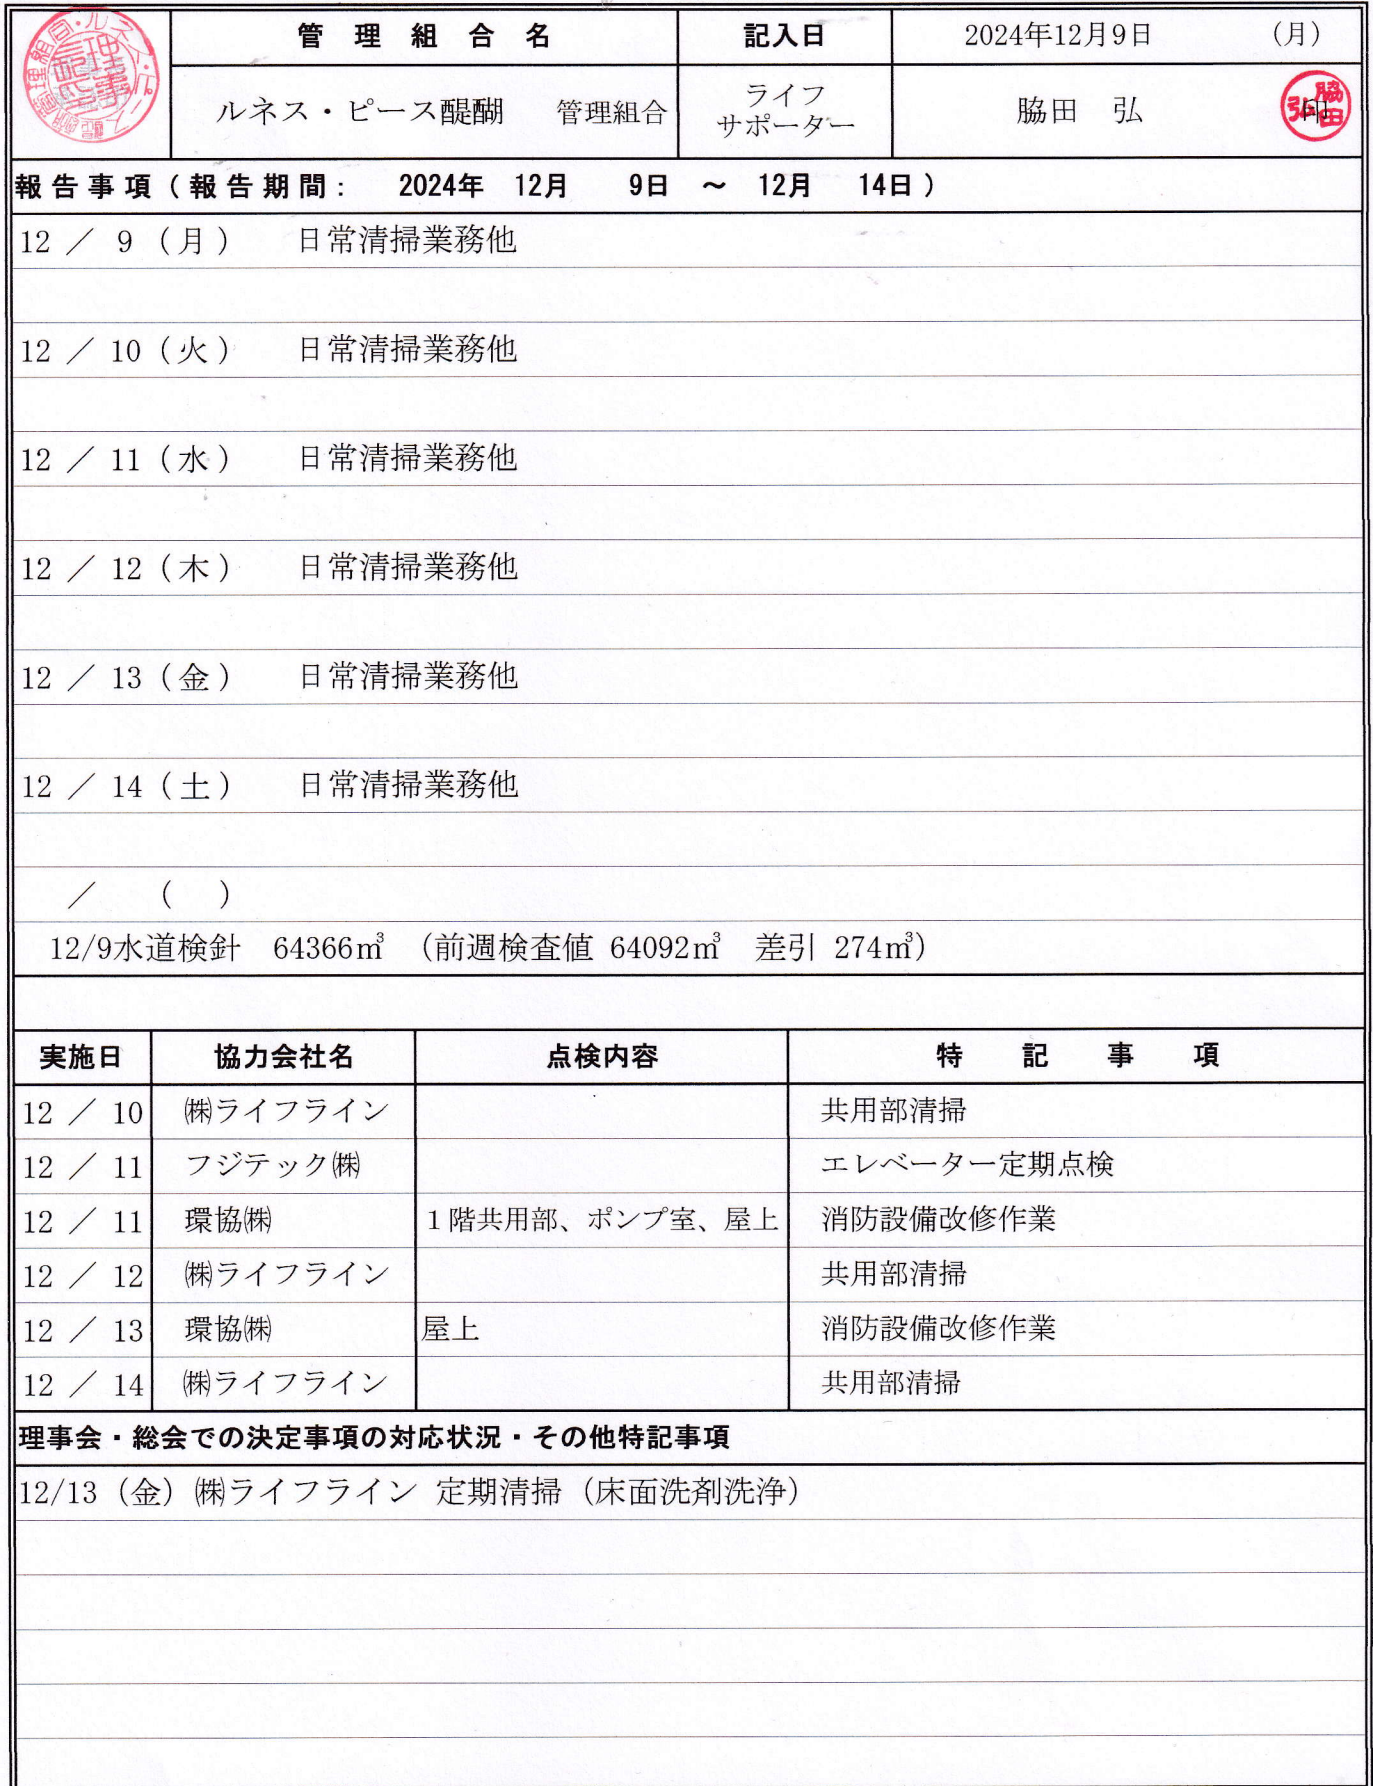 管理組合名 記入日 2024年12月9日 (月)
ルネス・ピース醍醐 管理組合 ライフ
サポーター 脇田 弘 印
報告事項(報告期間: 2024年 12月 9日 ～ 12月 14日)
12 ／ 9 (月) 日常清掃業務他
12 ／ 10 (火) 日常清掃業務他
12 ／ 11 (水) 日常清掃業務他
12 ／ 12 (木) 日常清掃業務他
12 ／ 13 (金) 日常清掃業務他
12 ／ 14 (土) 日常清掃業務他
／ ( )
12/9水道検針 64366㎥ (前週検査値 64092㎥ 差引 274㎥)
実施日 協力会社名 点検内容 特記事項
12 ／ 10 ㈱ライフライン 共用部清掃
12 ／ 11 フジテック㈱ エレベーター定期点検
12 ／ 11 環協㈱ １階共用部、ポンプ室、屋上 消防設備改修作業
12 ／ 12 ㈱ライフライン 共用部清掃
12 ／ 13 環協㈱ 屋上 消防設備改修作業
12 ／ 14 ㈱ライフライン 共用部清掃
理事会・総会での決定事項の対応状況・その他特記事項
12/13（金）㈱ライフライン 定期清掃（床面洗剤洗浄）